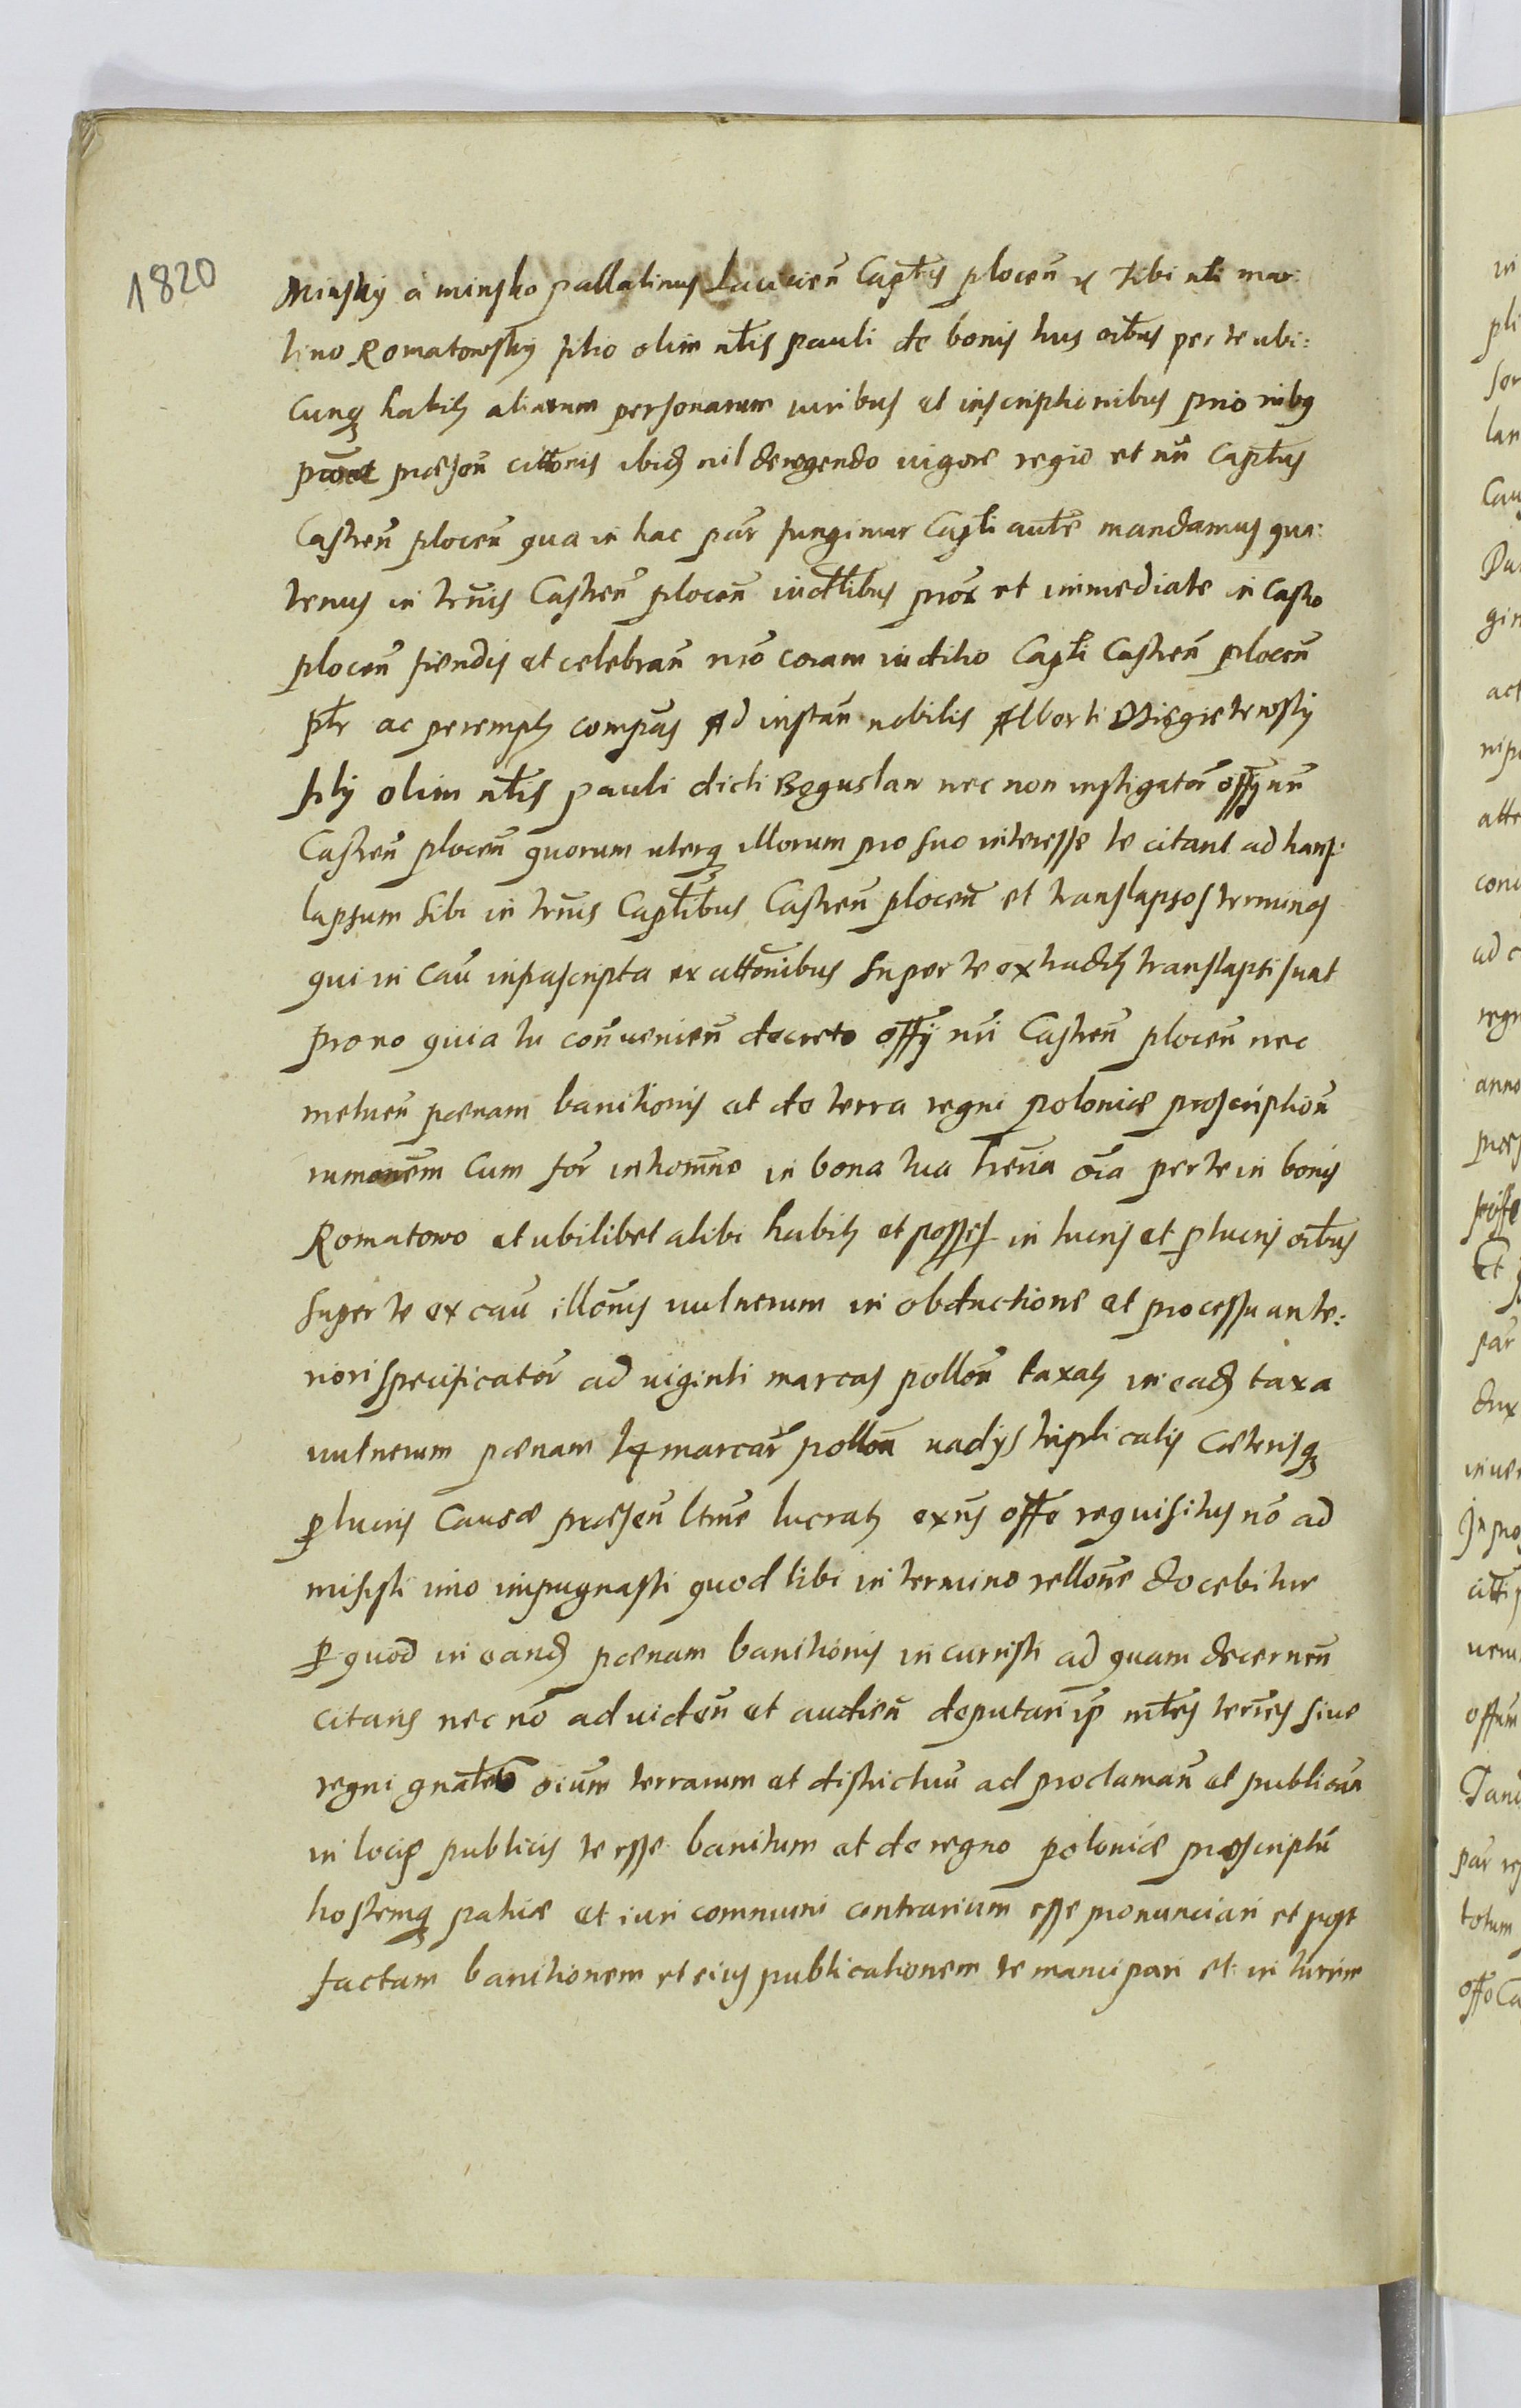 1820
Minsky a minsko pallatinus Lancicien̄ Capt̄us plocen̄ &c Tibi nt̄i mar:
tino Romatowsky filio olim nt̄is pauli de bonis tuis oib̄us per te ubi:
cunq habitꝫ aliarum personarum iuribus et inscriptionibus priōribꝯ
præsen̄ cittōnis ibidꝫ nil derogendo uigore regio et nr̄i Capt̄us
Castren̄ plocen̄ qua in hac par̄ fungimur Capt̄i autē mandamus qua:
tenus in trm̄is Castren̄ plocen̄ iudt̄ibus prox̄ et immediate in castro
plocen̄ fiendis et celebran̄ nrō coram iuditio Capt̄i Castren̄ plocen̄
ptr̄ ac peremptꝫ compas̄ Ad instan̄ nobilis Alberti
filÿ olim nt̄is pauli dicti Boguslaw nec non instigator̄ offÿ nr̄i
Castren̄ plocen̄ quorum uterqꝫ illorum pro suo interesse te citant ad trans:
lapsum sibi in trm̄is Capt̄ibus Castren̄ plocen̄ et translapsos terminos
qui in cau̅ infrascripta ex attōnibus super te extraditꝫ translapsi sunt
pro eo quia tu con̄uenien̄ decreto offÿ nr̄i Castren̄ plocen̄ nec
metuen̄ pœnam banitionis et de terra regni poloniæ proscription̄
rumonēm cum for̄ intromne in bona tua hrēia ōia per te in bonis
Romatowo et ubilibet alibi habitꝫ et posses in lucris et ꝑlucris oīb̄us
super te ex cau̅ illōnis uulnerum in obductione et processu ante:
riori specificator̄ ad uiginti marcas pollon̄ taxatꝫ in eadꝫ taxa
uulnerum pœnam marcar̄ pollon̄ uadÿs triplicatis Cæterisqꝫ
ꝑ lucris Causæ præsen̄ ltmē lucratꝫ ex nr̄s offo requisitus nō ad
misisti imo impugnasti quod tibi in termino rellōne docebitur
ꝑ quod in eandꝫ pœnam banitionis incurristi ad quam decernen̄
citaris nec nō ad uiden̄ et audien̄ deputari ip̄ mt̄es terr̄es siue
regni gnāt̄em oium terrarum et districtuū ad proclaman̄ et publican̄
in locis publicis te esse banitum et de regno poloniæ proscriptū
hostemqꝫ patriæ et iuri communi contrarium esse pronunciari et post
factam banitionem et eius publicationem te mancipari et in turrim